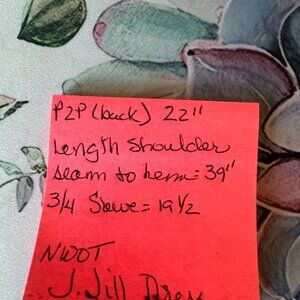 P2P (back) 22"
Length shoulder
seam to hem = 39"
3/4 Sleeve = 19 1/2
NWOT
J. Jill Dress